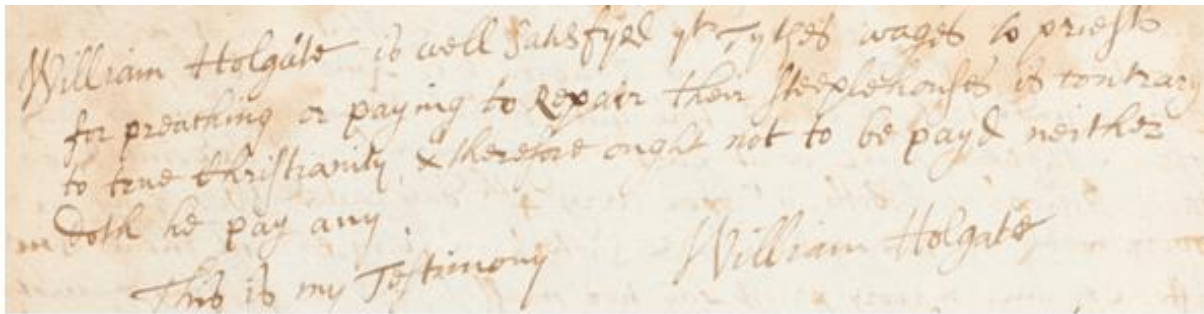 William Holgate is well satisfyed yt Tythes wages to priests
for preaching or paying to Repair their steeplehouses is contrary
to true Christianity, & therefore ought not to be payd neither
doth he pay any.
This is my Testimony William Holgate